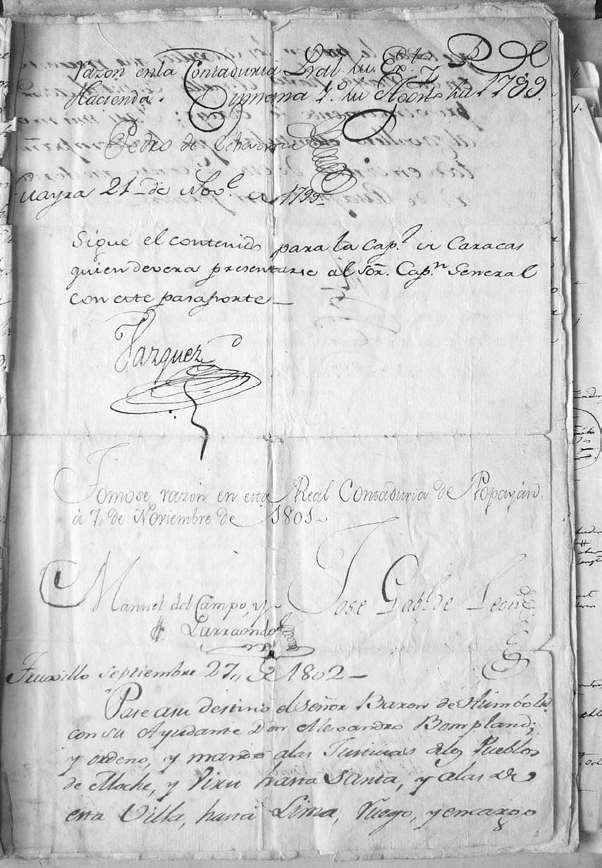 razon en la Contaduria Gral de Ex.to y Rl
Hacienda. Cumana 1.º de Agosto de 1799.
Pedro de Echaverria
Guayra 21 de Nov.e de 1799
Sigue el contenido para la Cap.l de Caracas
quien devera presentarse al Sor. Cap.n General
con este pasaporte
Vazquez
Tomose razon en esta Real Contaduria de Popayán
á 7, de Noviembre de 1801
Manuel del Campo, y
Larraondo
Jose Gabl. de Leon
Truxillo Septiembre 27,, de 1802
Pase a su destino el Señor Baron de Humbóldt
con su Ayudante Don Alexandro Bompland;
y ordeno, y mando alas Justicias de los Pueblos
de Moche, y Virú hasta Santa, y alas de
esta Villa, hasta Lima, ruego, y encargo